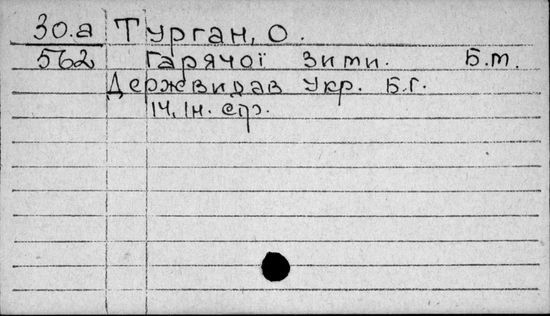 30.а Турган, О.
562 Гарячої зими. Б.т.
Держвидав Укр. Б.г.
14, 1н. стр.